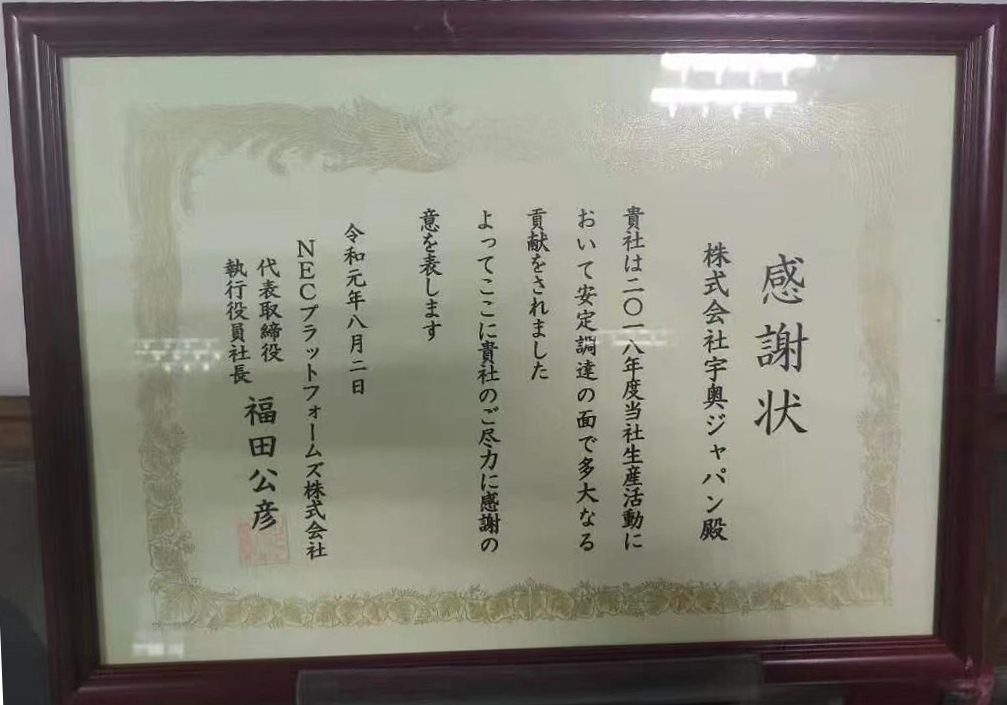 感謝状
株式会社宇奥ジャパン殿
貴社は二〇一八年度当社生産活動に
おいて安定調達の面で多大なる
貢献をされました
よってここに貴社のご尽力に感謝の
意を表します
令和元年八月二日
NECプラットフォームズ株式会社
代表取締役
執行役員社長
福田公彦